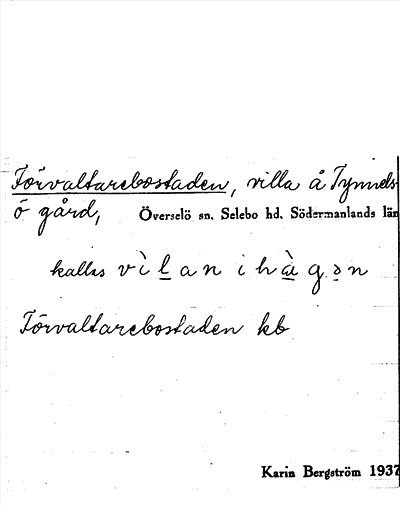 Förvaltarebostaden, villa å Tynnels-
ö gård, Överselö sn. Selebo hd. Södermanlands län
kallas vìlan i hàgən
Förvaltarebostaden kb
Karin Bergström 1937